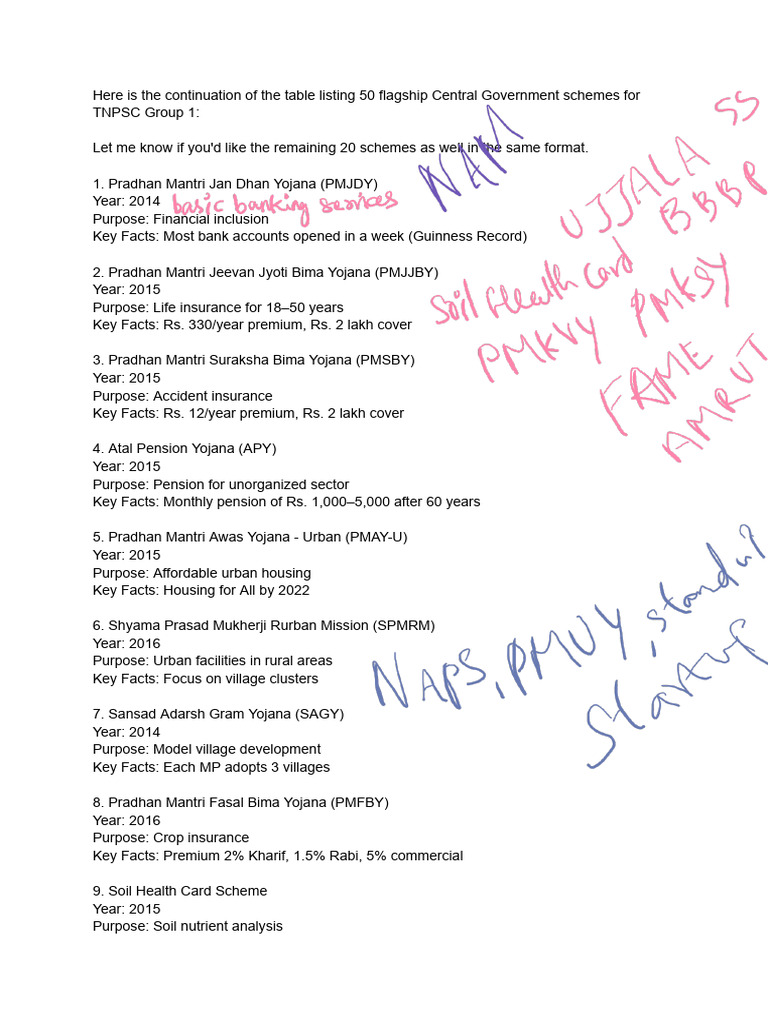 Here is the continuation of the table listing 50 flagship Central Government schemes for
TNPSC Group 1:
Let me know if you'd like the remaining 20 schemes as well in the same format.
NAM
SS
UJJALA
BBBP
Soil Health Card
PMKVY PMKSY
FAME
AMRUT
1. Pradhan Mantri Jan Dhan Yojana (PMJDY)
Year: 2014
basic banking services
Purpose: Financial inclusion
Key Facts: Most bank accounts opened in a week (Guinness Record)
2. Pradhan Mantri Jeevan Jyoti Bima Yojana (PMJJBY)
Year: 2015
Purpose: Life insurance for 18–50 years
Key Facts: Rs. 330/year premium, Rs. 2 lakh cover
3. Pradhan Mantri Suraksha Bima Yojana (PMSBY)
Year: 2015
Purpose: Accident insurance
Key Facts: Rs. 12/year premium, Rs. 2 lakh cover
4. Atal Pension Yojana (APY)
Year: 2015
Purpose: Pension for unorganized sector
Key Facts: Monthly pension of Rs. 1,000–5,000 after 60 years
5. Pradhan Mantri Awas Yojana - Urban (PMAY-U)
Year: 2015
Purpose: Affordable urban housing
Key Facts: Housing for All by 2022
6. Shyama Prasad Mukherji Rurban Mission (SPMRM)
Year: 2016
Purpose: Urban facilities in rural areas
Key Facts: Focus on village clusters
NAPS, PMUY, standup
Startup
7. Sansad Adarsh Gram Yojana (SAGY)
Year: 2014
Purpose: Model village development
Key Facts: Each MP adopts 3 villages
8. Pradhan Mantri Fasal Bima Yojana (PMFBY)
Year: 2016
Purpose: Crop insurance
Key Facts: Premium 2% Kharif, 1.5% Rabi, 5% commercial
9. Soil Health Card Scheme
Year: 2015
Purpose: Soil nutrient analysis